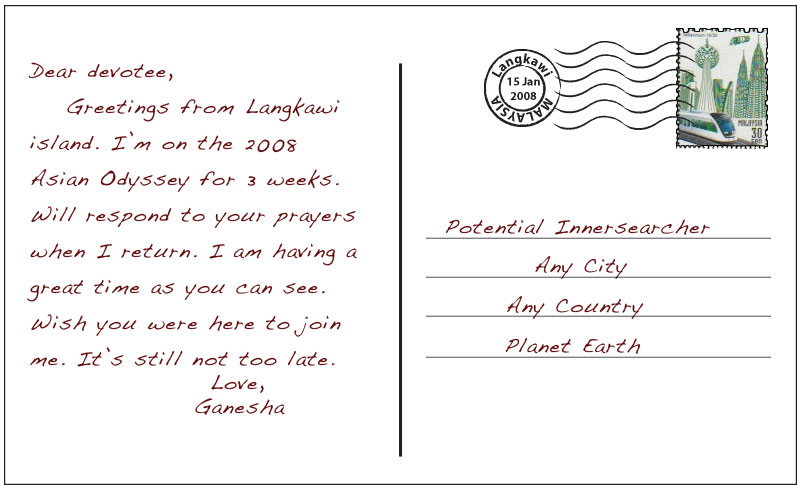 Dear devotee,
Greetings from Langkawi
island. I'm on the 2008
Asian Odyssey for 3 weeks.
Will respond to your prayers
when I return. I am having a
great time as you can see.
Wish you were here to join
me. It's still not too late.
Love,
Ganesha
Langkawi
15 Jan
2008
MALAYSIA
MALAYSIA
30
sen
Potential Innersearcher
Any City
Any Country
Planet Earth